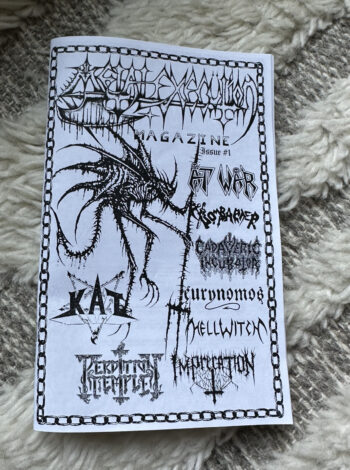 METAL EXECUTION
MAGAZINE
Issue #1
AT WAR
CADAVERIC
INCUBATOR
eurynomos
KAT
HELLWITCH
PERDITION
TEMPLE
IMPRECATION